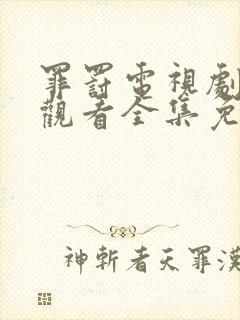 罪罰電視劇
觀看全集免
神斬者天罪漢